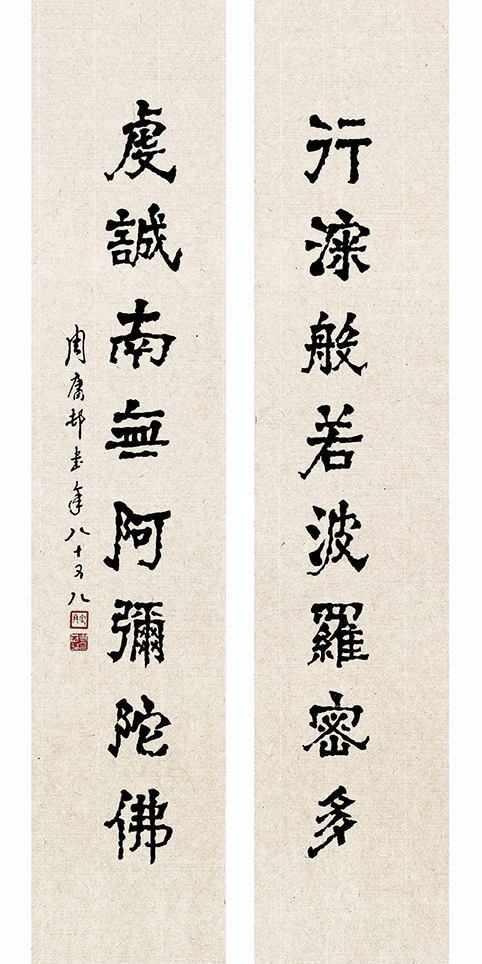 行深般若波羅密多
虔誠南無阿彌陀佛
周庸邨書年八十又八